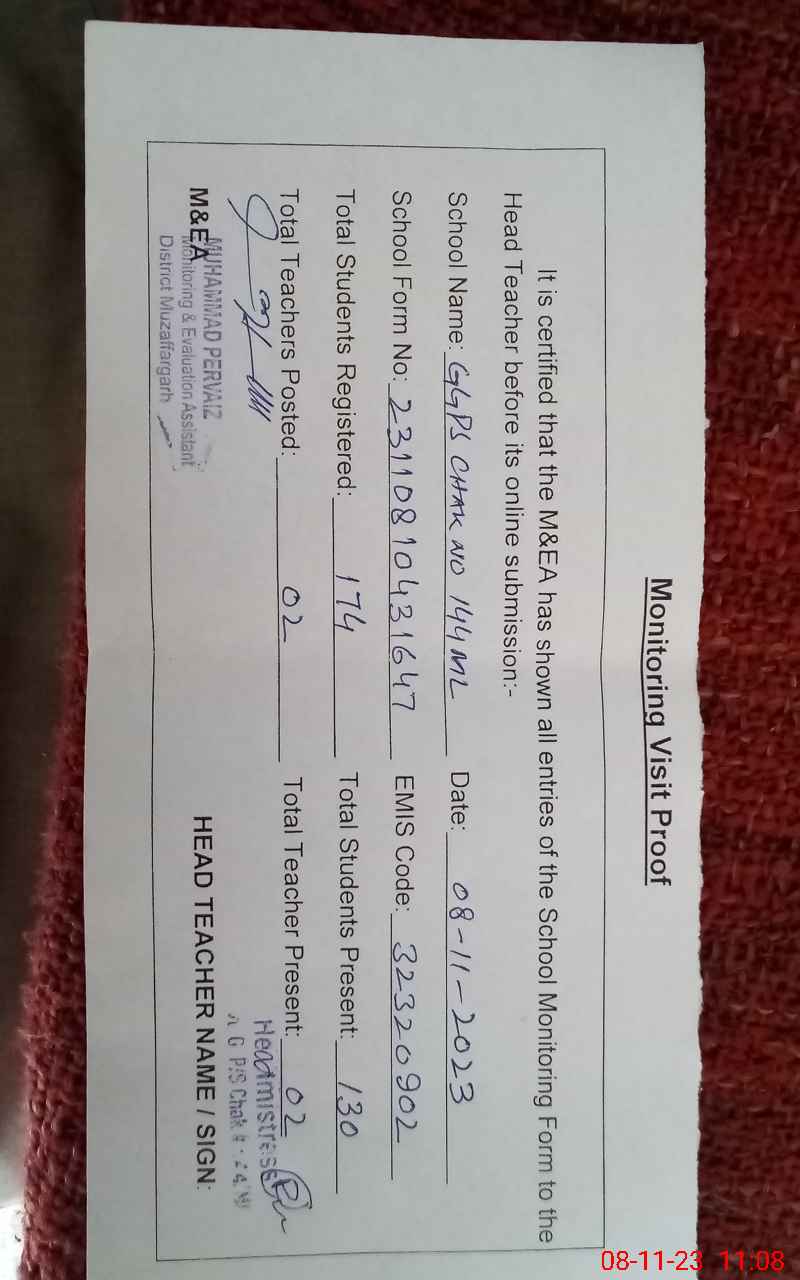 Monitoring Visit Proof
It is certified that the M&EA has shown all entries of the School Monitoring Form to the
Head Teacher before its online submission:-
School Name: GGPS CHAK NO 144 ML Date: 08-11-2023
School Form No: 23110810431647 EMIS Code: 32320902
Total Students Registered: 174 Total Students Present: 130
Total Teachers Posted: 02 Total Teacher Present: 02
Headmistress
G P/S Chak
M&EA
HEAD TEACHER NAME / SIGN:
MUHAMMAD PERVAIZ
Monitoring & Evaluation Assistant
District Muzaffargarh
08-11-23 11:08